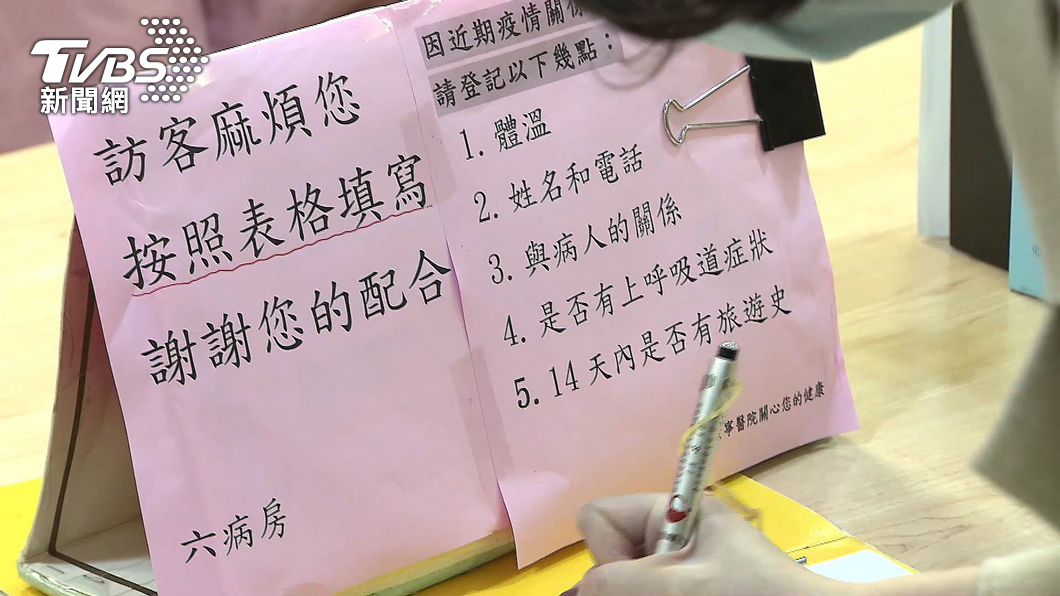 TVBS
新聞網
訪客麻煩您
按照表格填寫
謝謝您的配合
六病房
因近期疫情關係
請登記以下幾點：
1. 體溫
2. 姓名和電話
3. 與病人的關係
4. 是否有上呼吸道症狀
5. 14天內是否有旅遊史
寧醫院關心您的健康